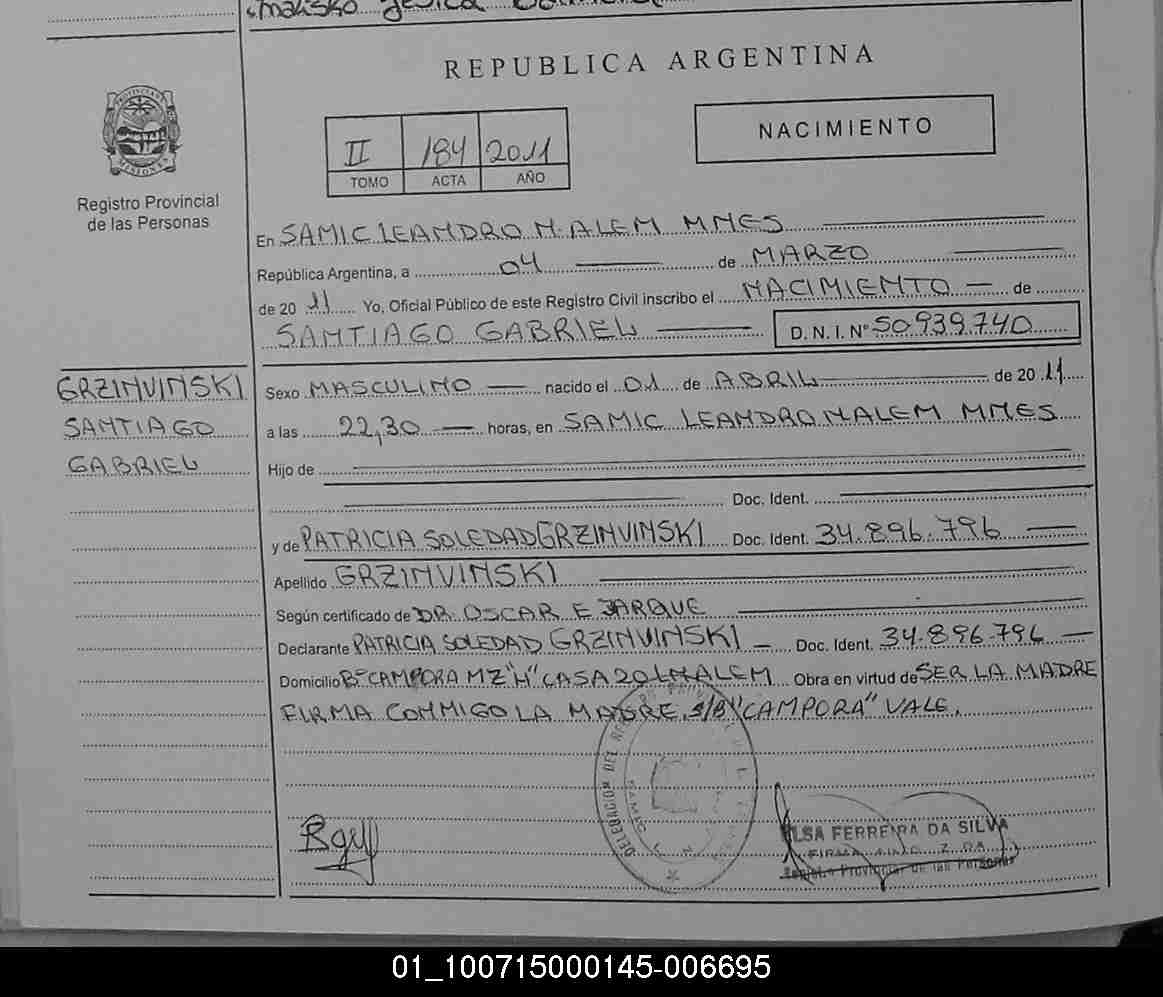 REPUBLICA ARGENTINA
PROVINCIA DE
MISIONES
Registro Provincial
de las Personas
II 184 2011
TOMO ACTA AÑO
NACIMIENTO
En SAMIC LEANDRO N. ALEM MNES
República Argentina, a 04 de MARZO
de 2011 Yo, Oficial Público de este Registro Civil inscribo el NACIMIENTO de
SANTIAGO GABRIEL D. N. I. Nº 50939740
GRZINVINSKI
SANTIAGO
GABRIEL
Sexo MASCULINO nacido el 01 de ABRIL de 2011
a las 22,30 horas, en SAMIC LEANDRO N ALEM MNES
Hijo de
Doc. Ident.
y de PATRICIA SOLEDAD GRZINVINSKI Doc. Ident. 34.896.796
Apellido GRZINVINSKI
Según certificado de DR. OSCAR E JARQUE
Declarante PATRICIA SOLEDAD GRZINVINSKI Doc. Ident. 34.896.796
Domicilio Bº CAMPORA MZ "H" CASA 20 L N ALEM Obra en virtud de SER LA MADRE
FIRMA CONMIGO LA MADRE. S/B "CAMPORA" VALE.
DELEGACION DEL
ELSA FERREIRA DA SILVA
Registro Provincial de las Personas
01_100715000145-006695